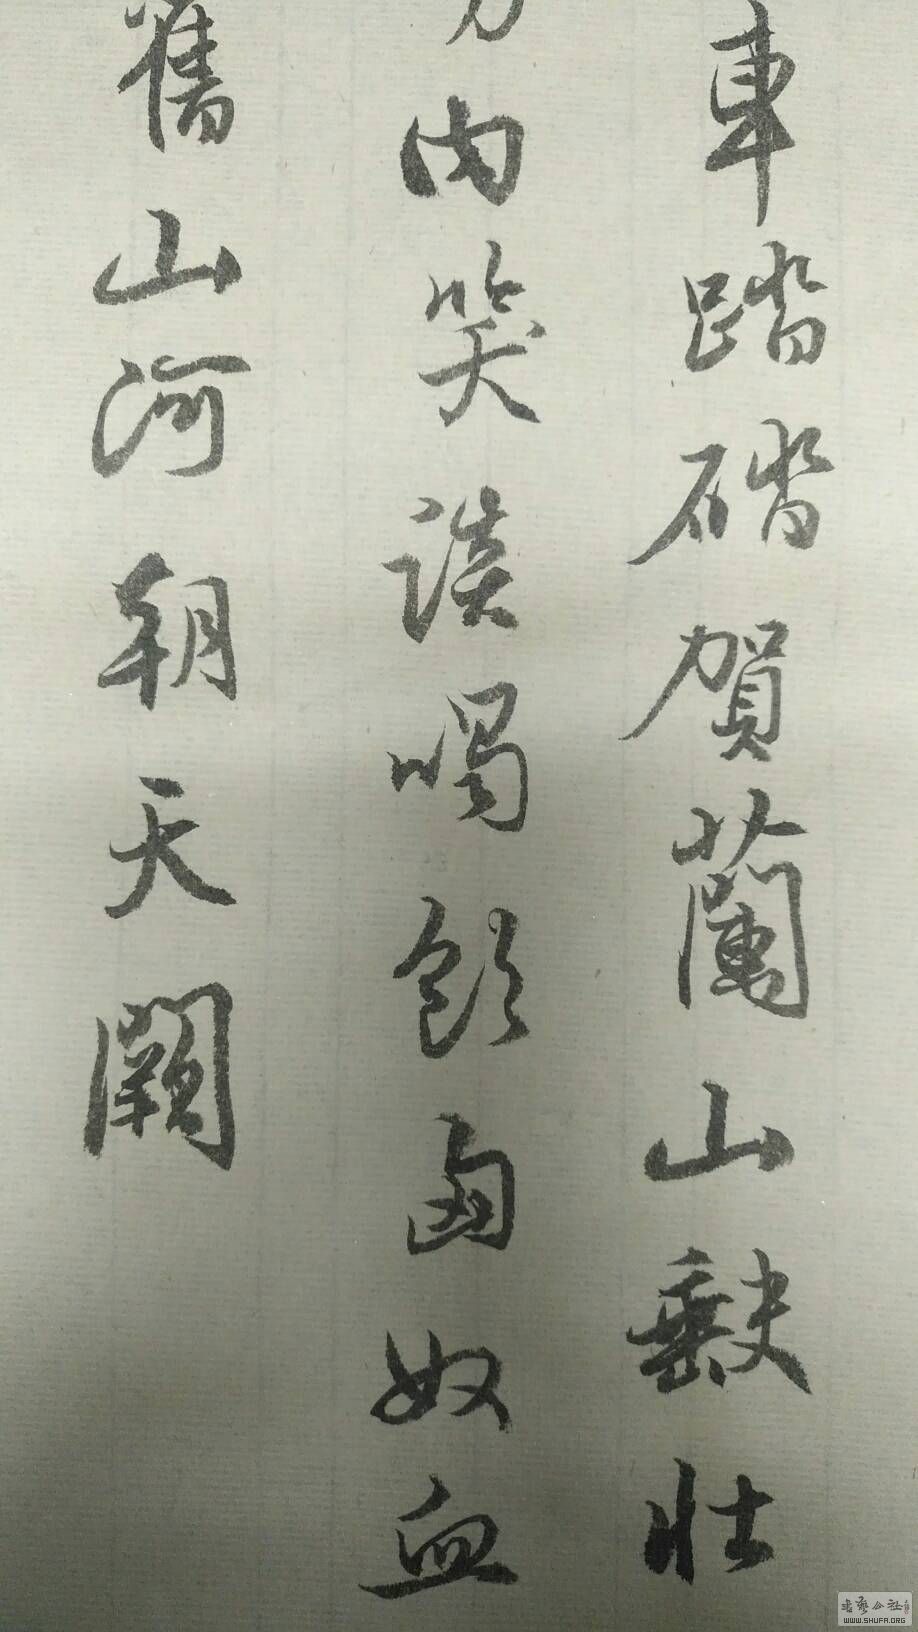 車踏踏賀蘭山缺壯
肉笑談喝飲匈奴血
舊山河朝天闕
書藝公社
WWW.SHUFA.ORG